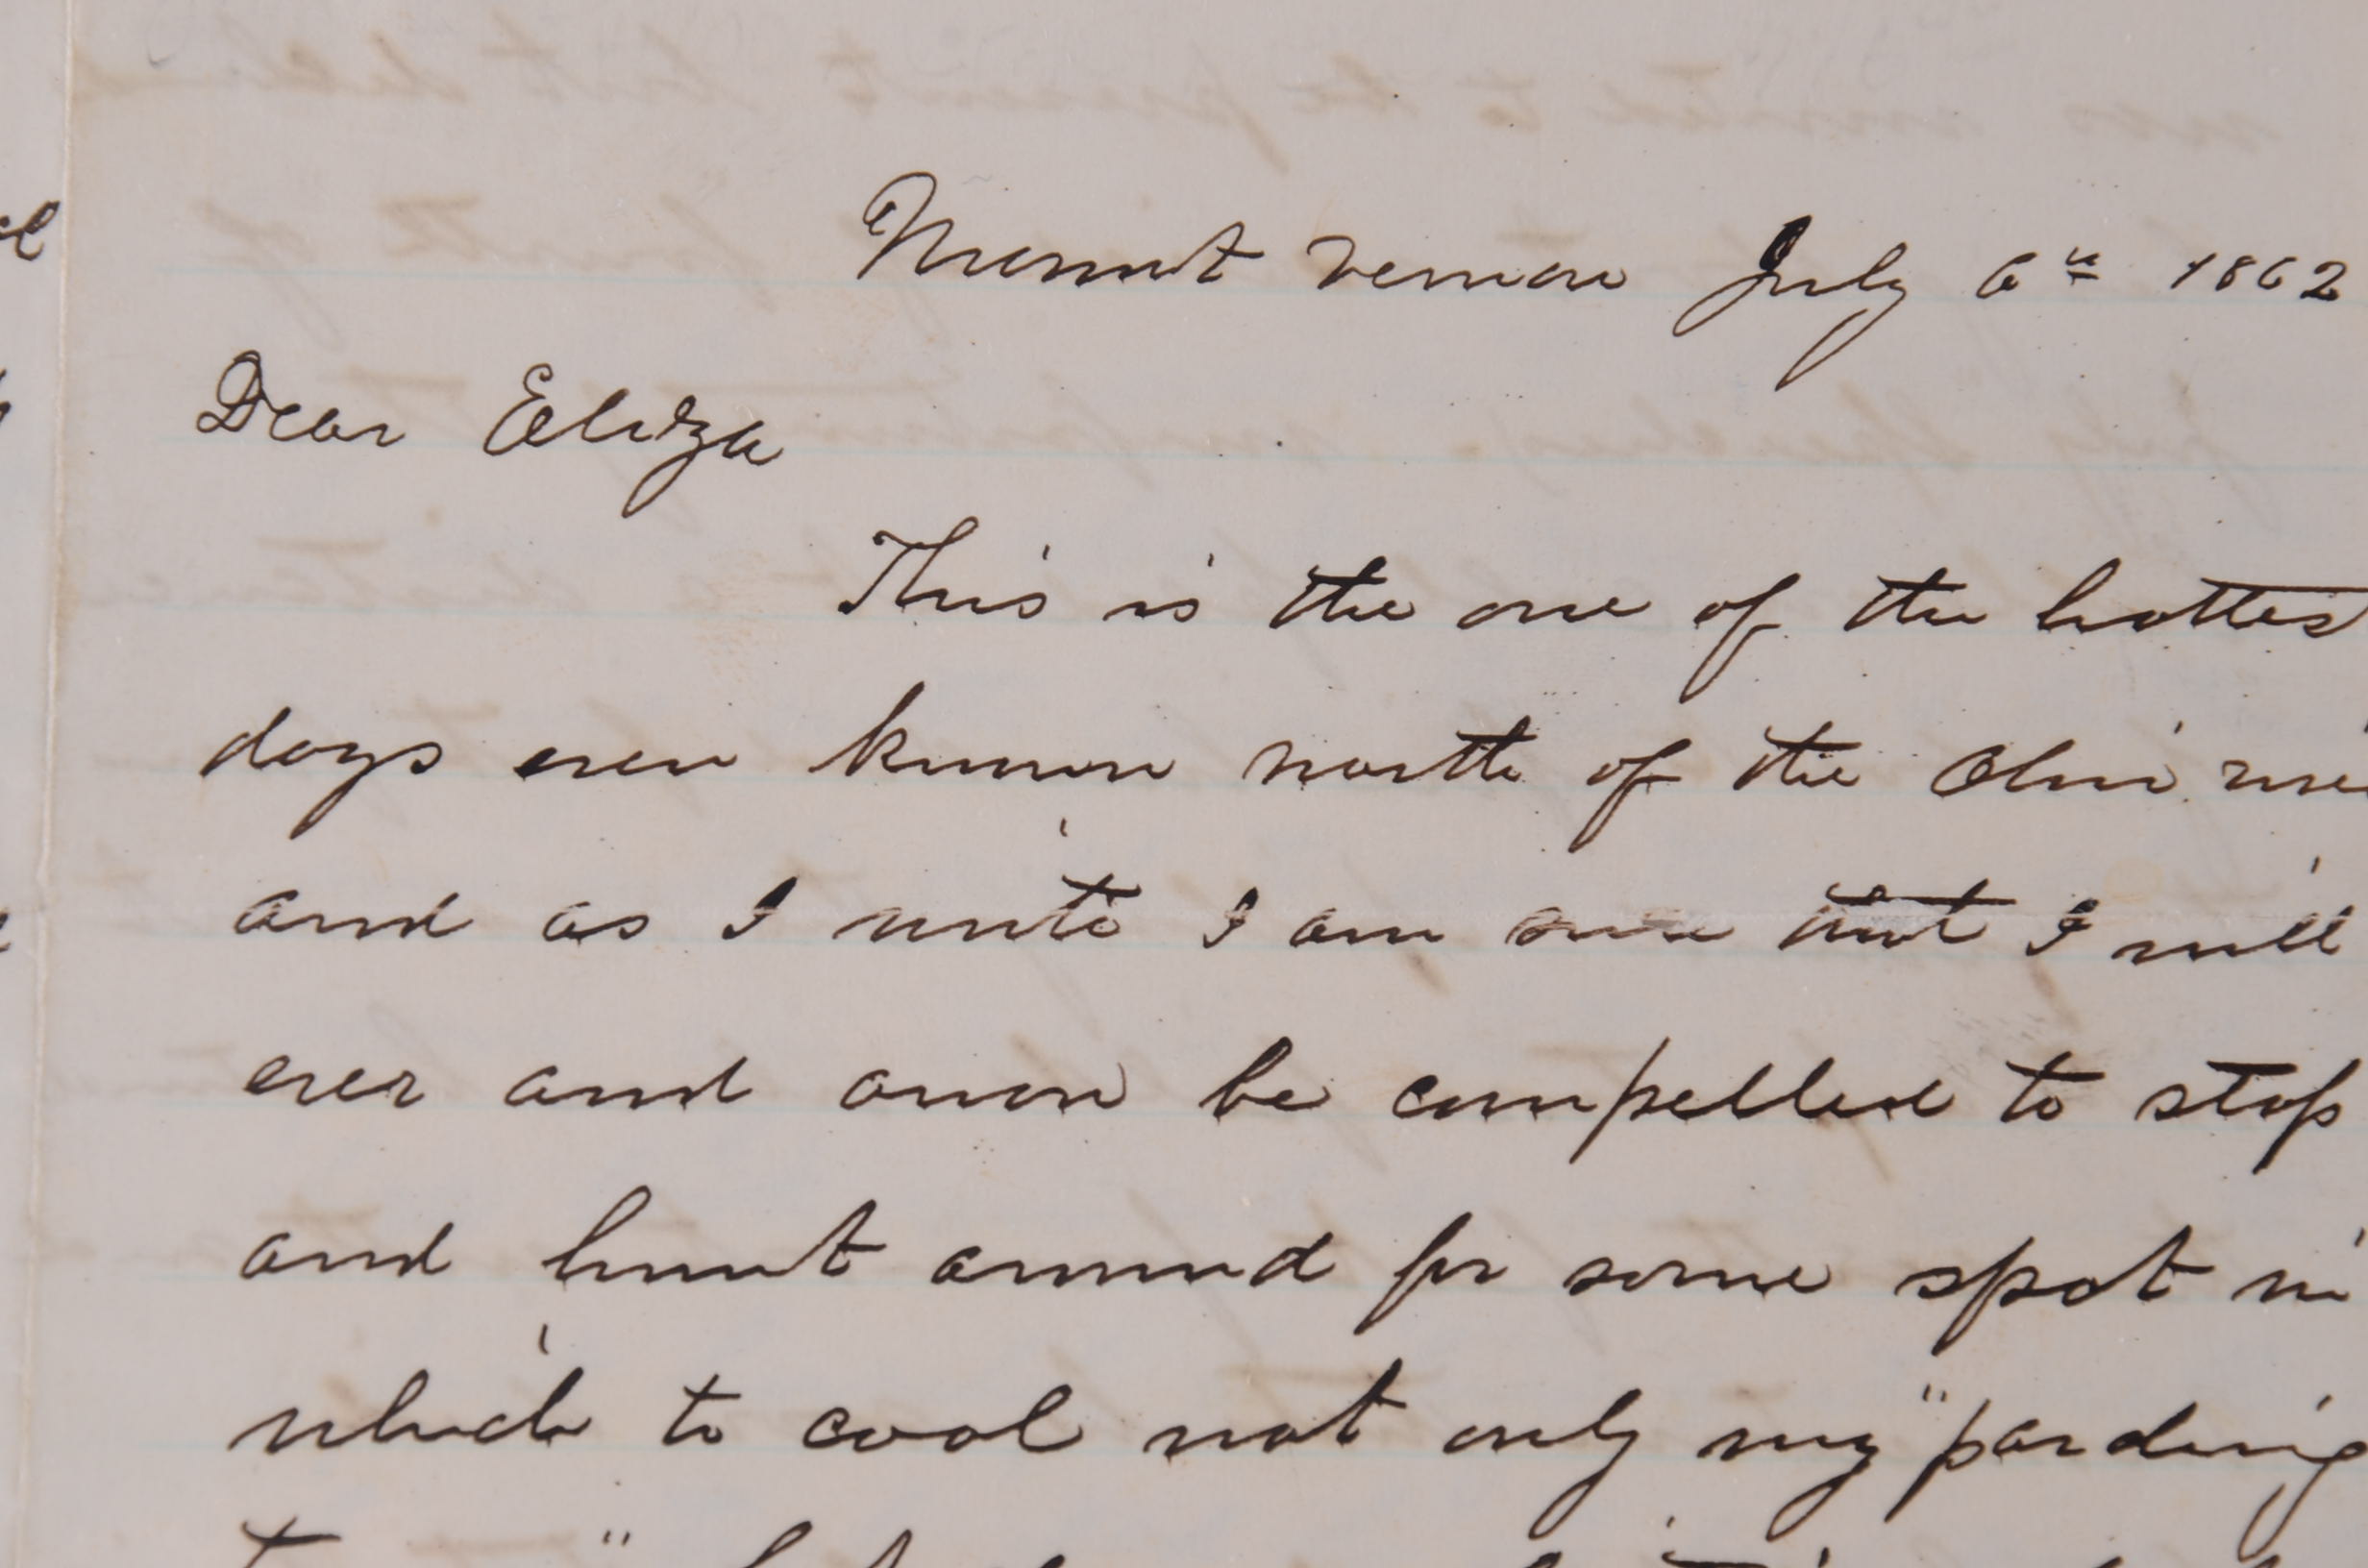 Mount Vernon July 6th 1862
Dear Eliza
This is the one of the hottes
days ever known north of the Ohio rive
and as I write I am sure that I will
ever and anon be compelled to stop
and hunt around for some spot in
which to cool not only my "parching